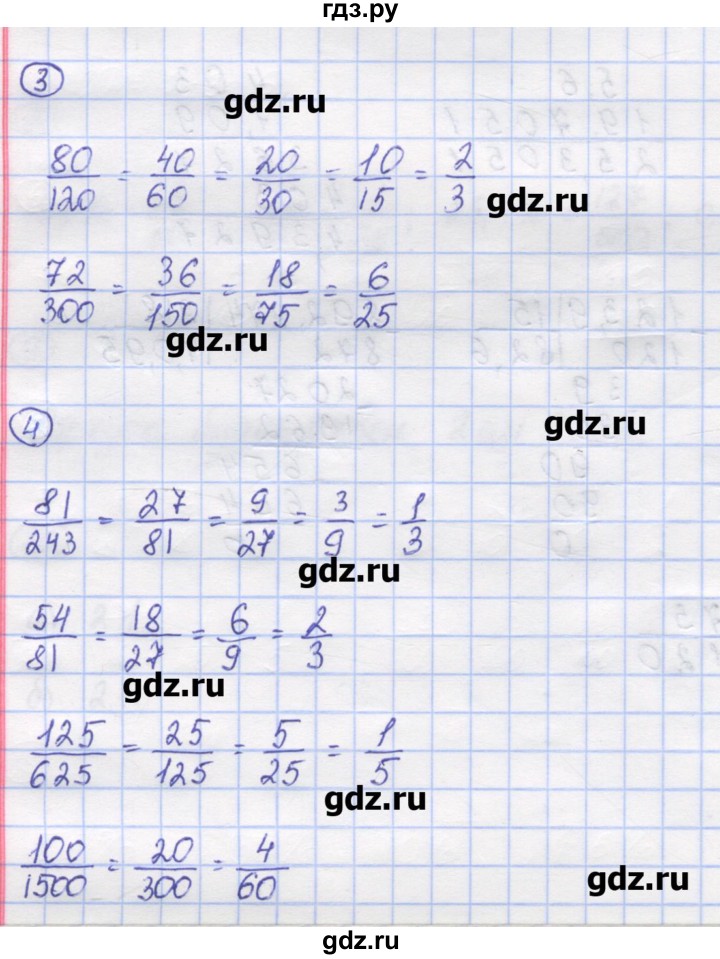 гдз.ру
3
gdz.ru
80/120 = 40/60 = 20/30 = 10/15 = 2/3
gdz.ru
72/300 = 36/150 = 18/75 = 6/25
gdz.ru
4
gdz.ru
81/243 = 27/81 = 9/27 = 3/9 = 1/3
gdz.ru
54/81 = 18/27 = 6/9 = 2/3
gdz.ru
125/625 = 25/125 = 5/25 = 1/5
gdz.ru
100/1500 = 20/300 = 4/60
gdz.ru
gdz.ru